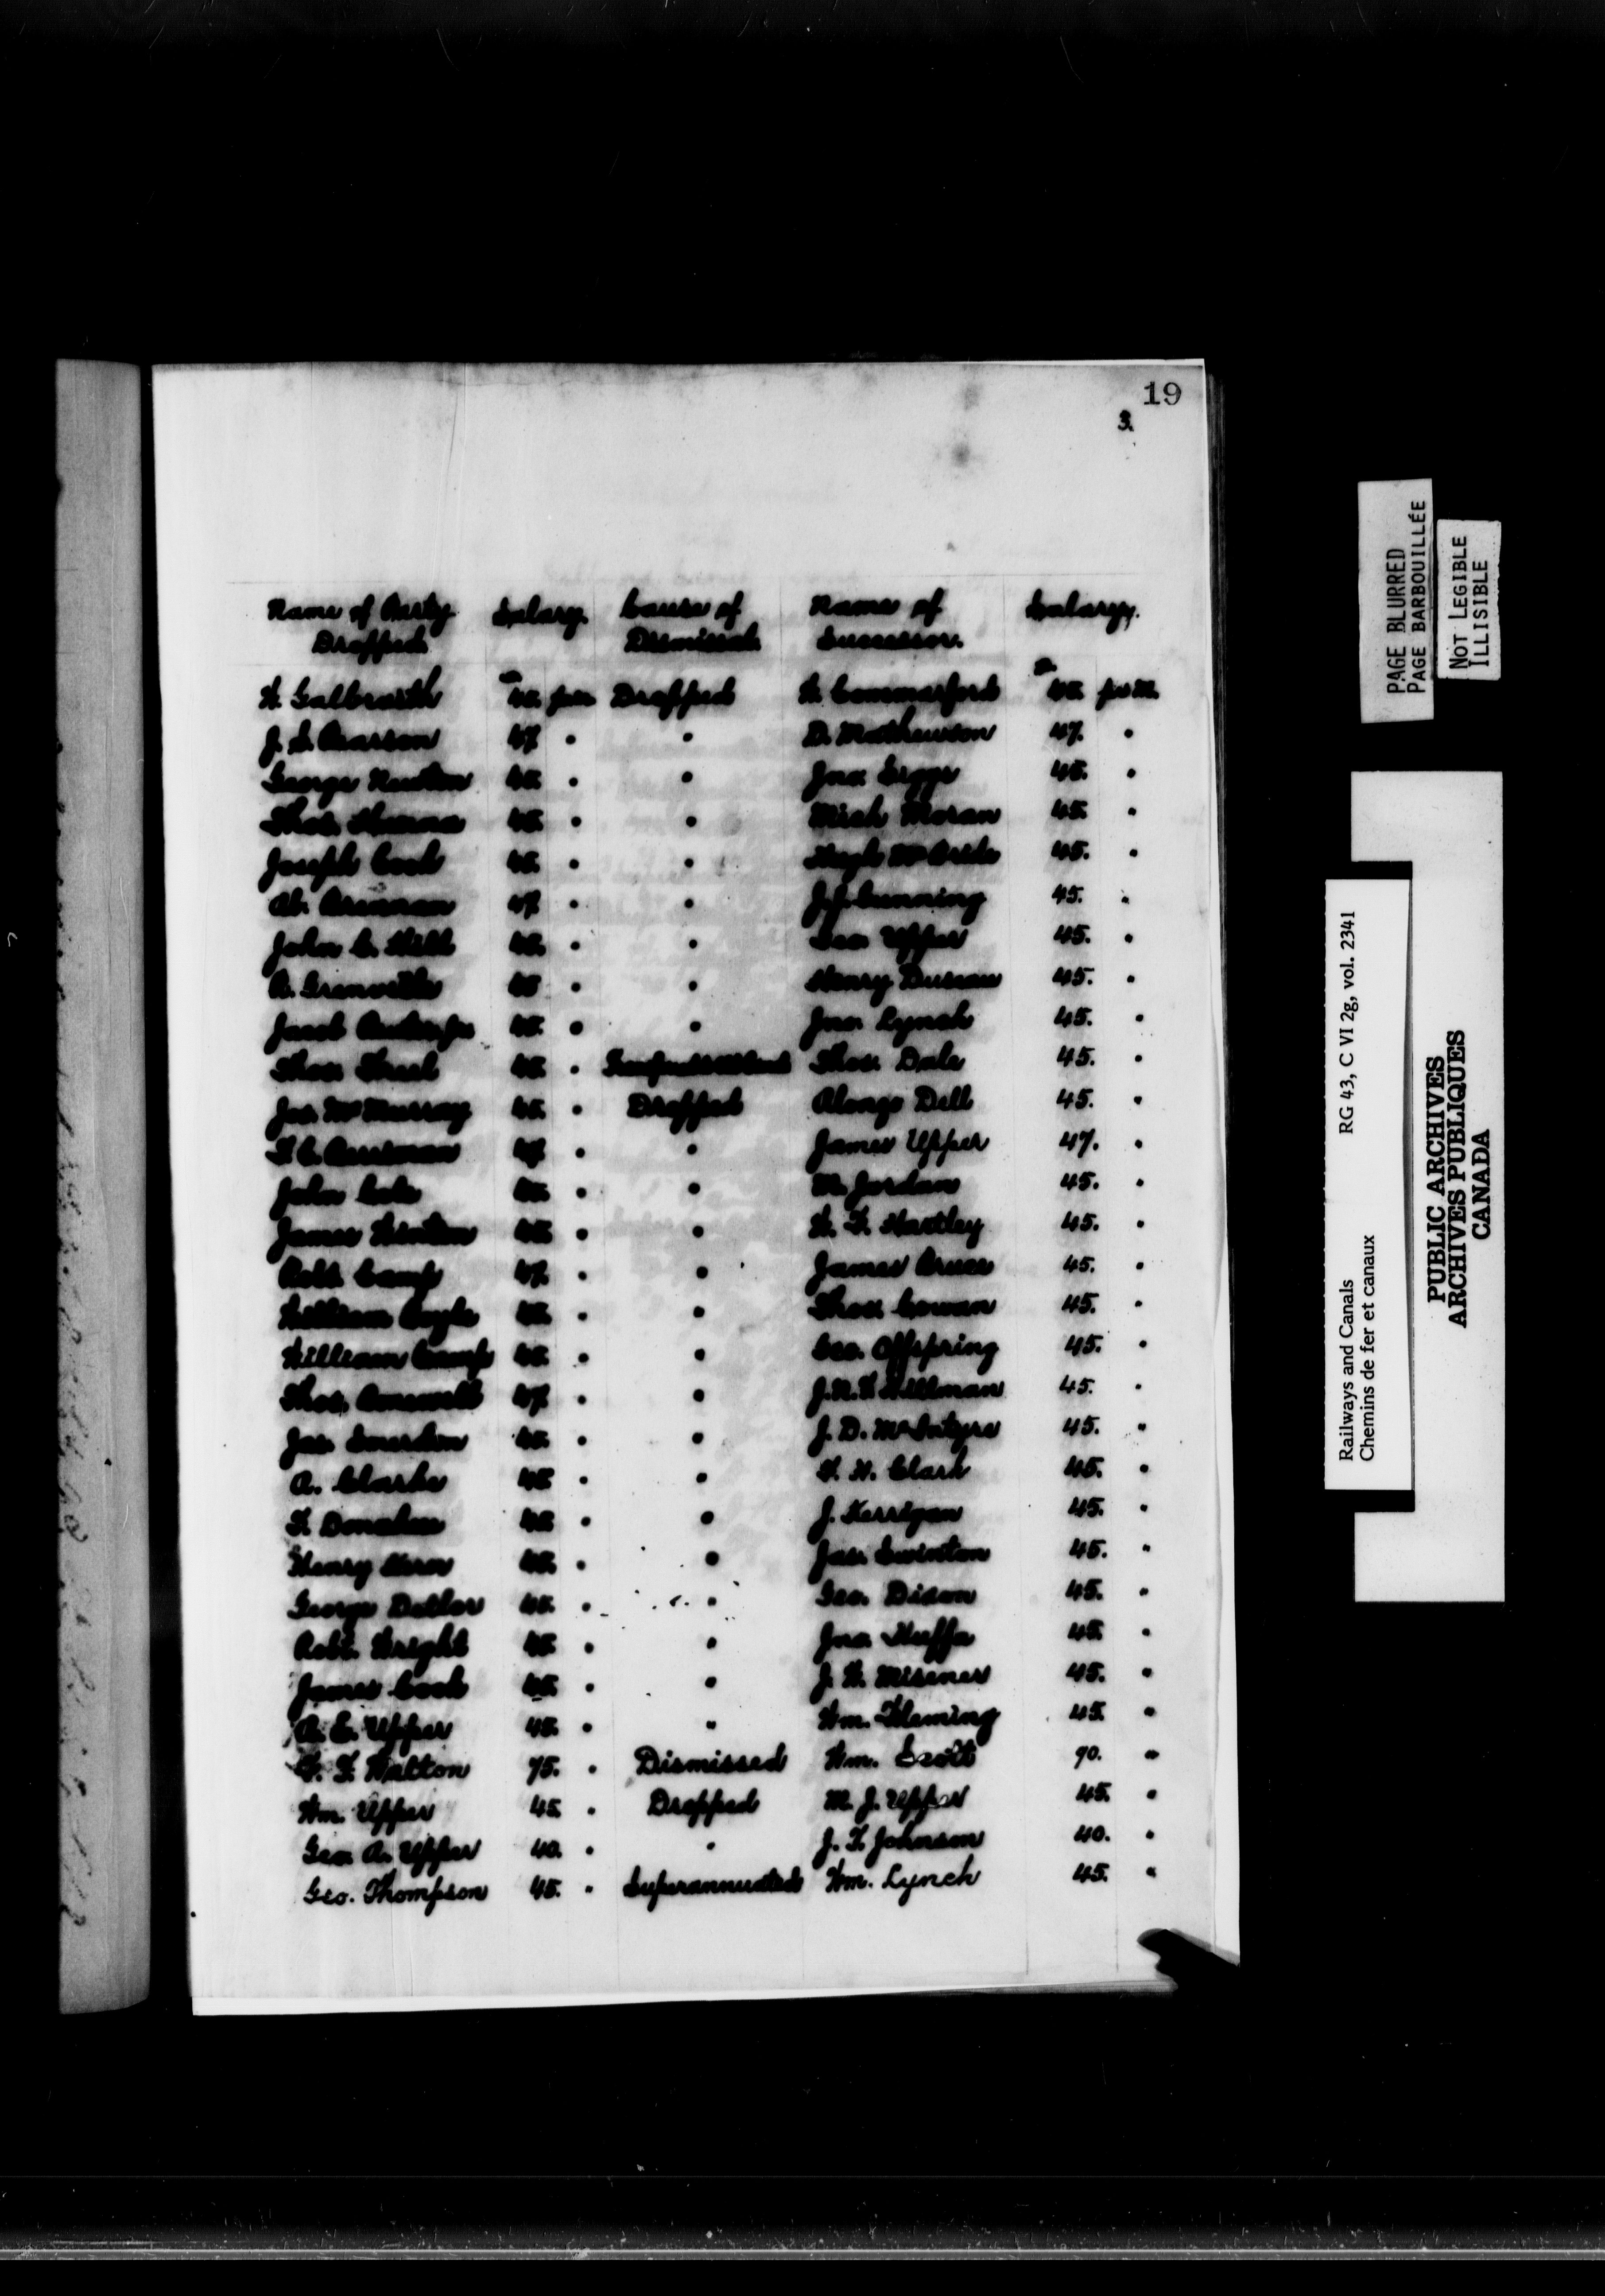 19
3.
Name of Party Dropped. Salary. Cause of Dismissal. Name of Successor. Salary.
W. Galbraith 45. per Dropped W. Commerford 45. per M.
J. S. Pearson 47 " " D. Mathewson 47. "
George Newton 45. " " Jno. Griggs 45. "
Thos. Hanna 45. " " Mich Moran 45. "
Joseph Cook 45. " " Hugh McBride 45. "
Brennan 47 " " J. J. Cunning 45. "
John C. Hill 45. " " Geo. Upper 45. "
Grenville 45 " " Henry 45. "
Jacob 45. " " Jno. Lynch 45. "
Thos. 45. " Superannuated Thos. Dale 45. "
Jas. McMurray 45. " Dropped Alonzo Dell 45. "
47. " " James Upper 47. "
John Cole 45. " " M. Jordan 45. "
James 45. " " W. F. Hartley 45. "
Robt. Camp 47. " " James Bruce 45. "
William 45. " " Thos. Cowan 45. "
William Camp 45. " " Geo. Offspring 45. "
Thos. 47. " " Hellman 45. "
Jas. 45. " " J. D. McIntyre 45. "
A. Clarke 45 " " Clark 45. "
Donahue 45 " " J. Kerrigan 45. "
Henry 45. " " Jas. Swinton 45. "
George Detlor 45. " " Geo. Dixon 45. "
Robt. Wright 45. " " Jno. Huffa 45. "
James Cook 45. " " J. W. Misener 45. "
A. E. Upper 45. " " Wm. Fleming 45. "
Walton 75. " Dismissed Wm. Scott 90. "
Wm. Upper 45. " Dropped M. J. Upper 45. "
Geo. A. Upper 40. " " J. T. Johnson 40. "
Geo. Thompson 45. " Superannuated Wm. Lynch 45. "
PAGE BLURRED
PAGE BARBOUILLÉE
NOT LEGIBLE
ILLISIBLE
Railways and Canals RG 43, C VI 2g, vol. 2341
Chemins de fer et canaux
PUBLIC ARCHIVES
ARCHIVES PUBLIQUES
CANADA